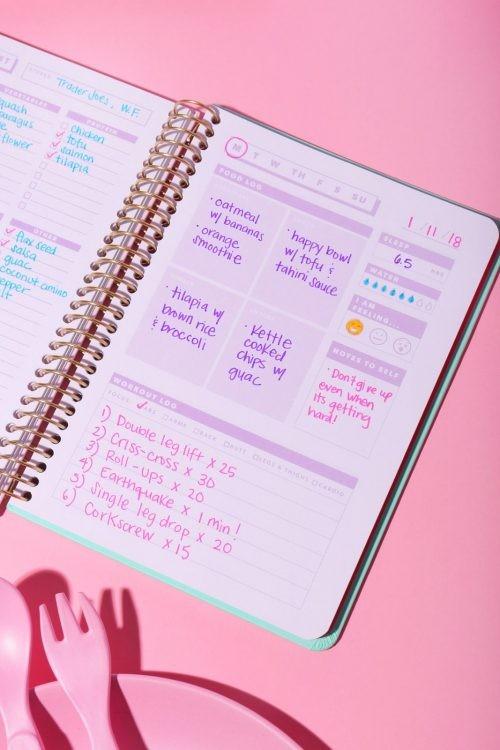 Trader Joes, W.F.
PROTEIN
chicken
tofu
salmon
tilapia
OTHER
flax seed
salsa
guac
coconut amino
M T W TH F S SU
1/11/18
FOOD LOG
• oatmeal
w/ bananas
• orange
smoothie
• happy bowl
w/ tofu &
tahini sauce
• tilapia w/
brown rice
& broccoli
• Kettle
cooked
chips w/
guac
SLEEP
6.5 HRS
WATER
I AM
FEELING...
NOTES TO SELF
• Don't give up
even when
its getting
hard!
WORKOUT LOG
FOCUS: ABS ARMS BACK BUTT LEGS & THIGHS CARDIO
1) Double leg lift x 25
2) Criss-cross x 30
3) Roll-ups x 20
4) Earthquake x 1 min!
5) Single leg drop x 20
6) Corkscrew x 15